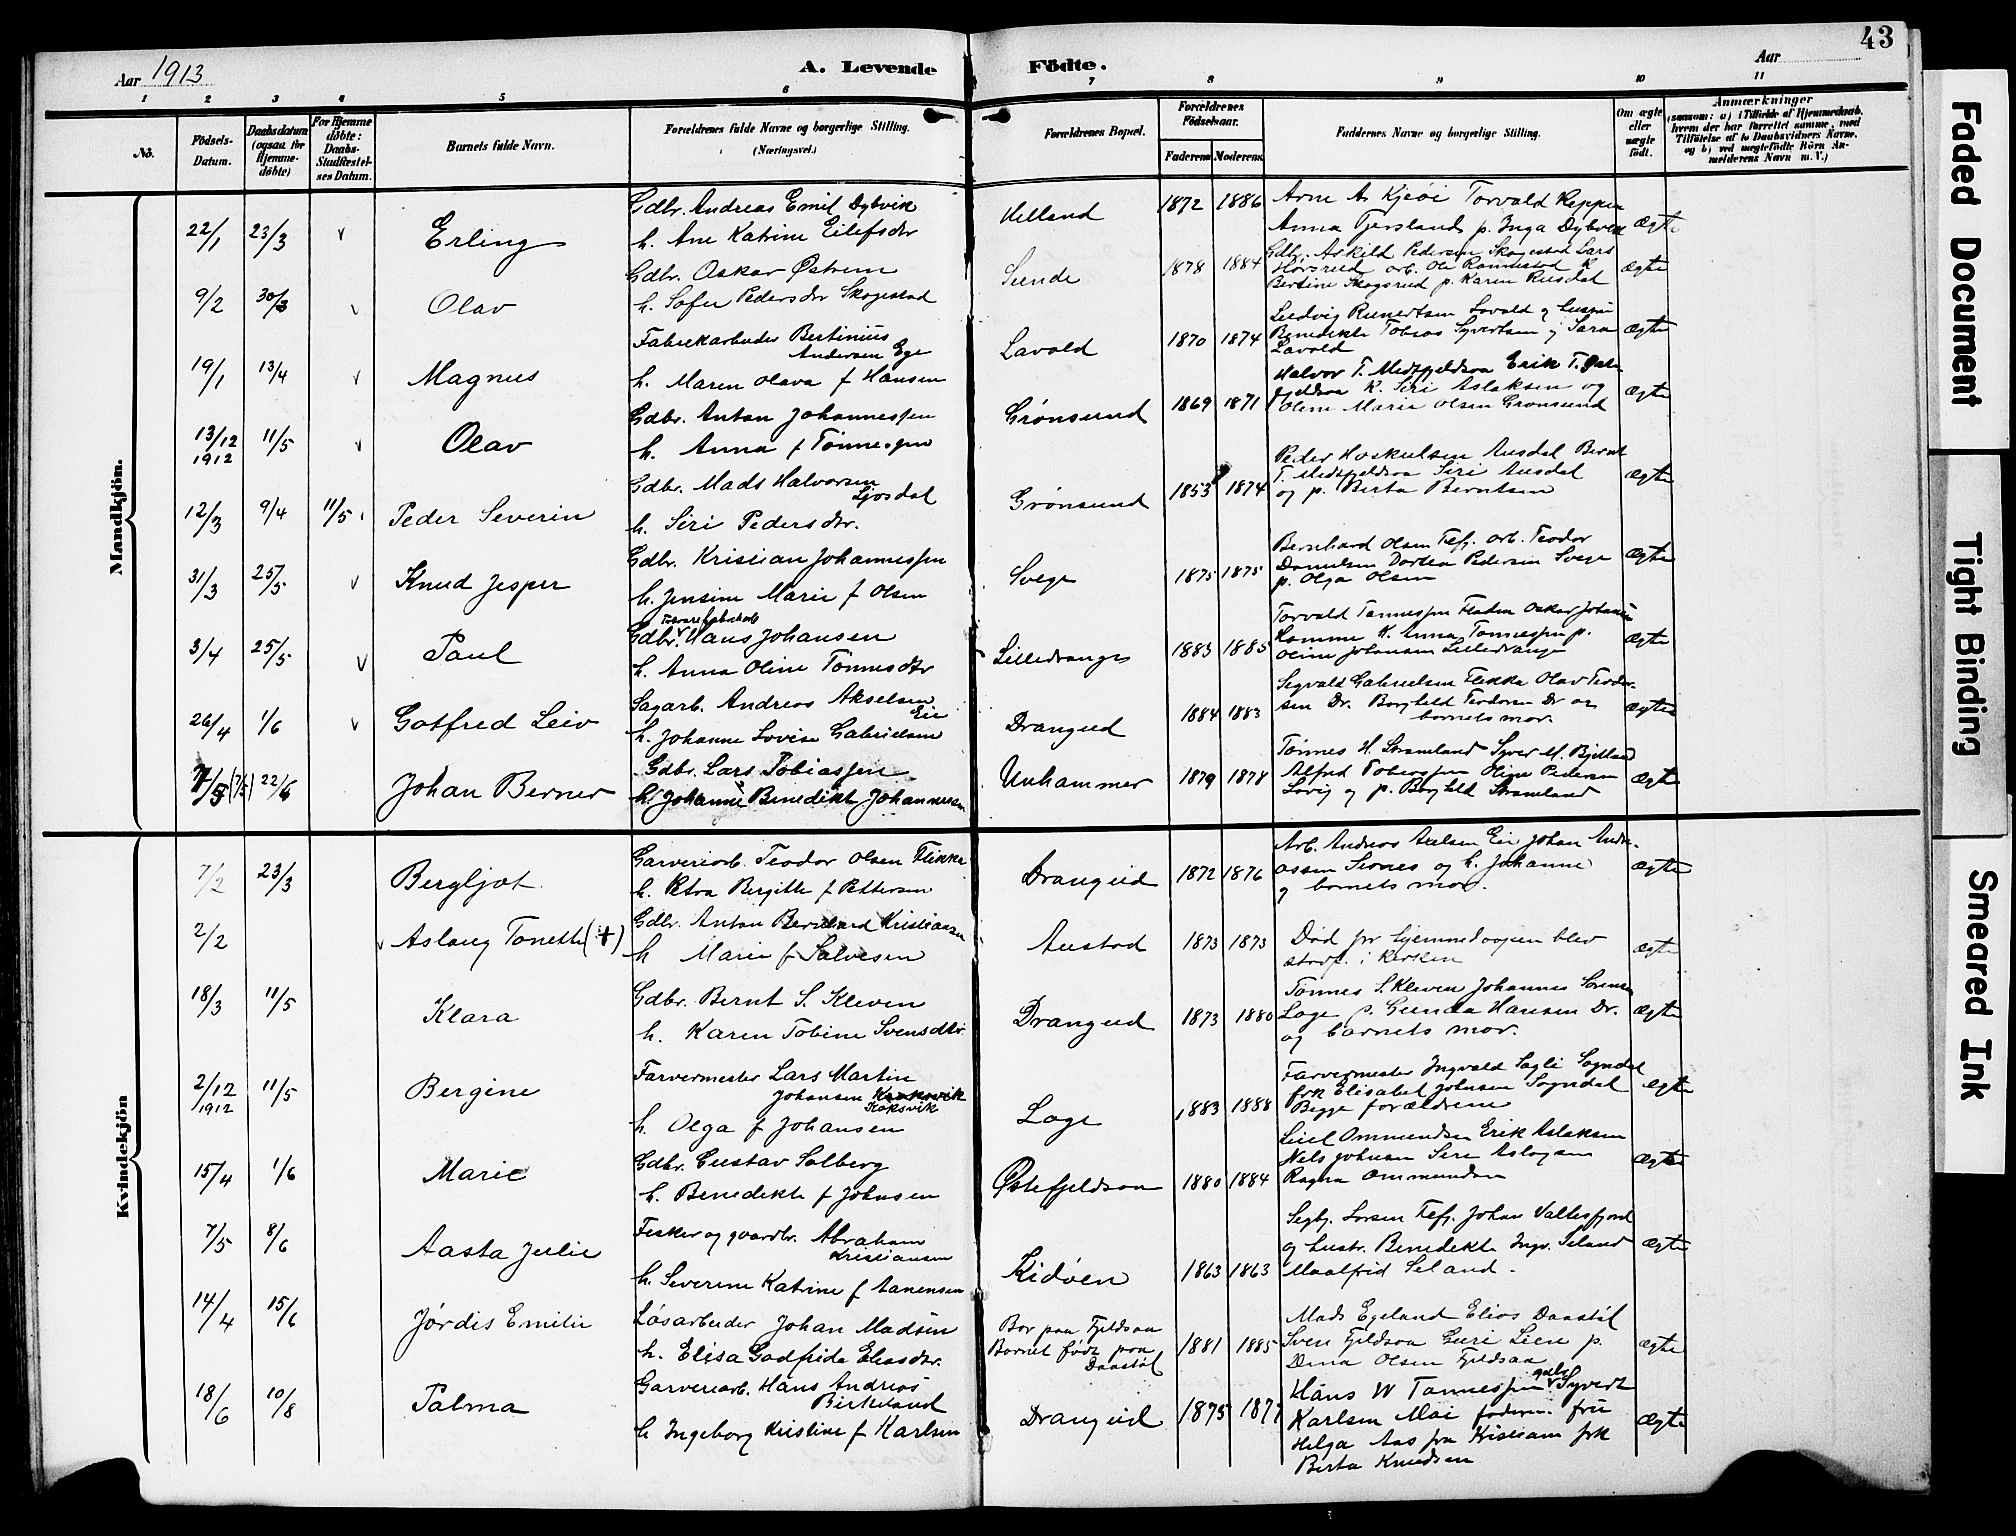 43
Aar 1913
A. Levende Födte.
Aar
1 2 3 4 5 6 7 8 9 10 11
No.
Födsels-Datum.
Daabsdatum (ogsaa for Hjemme-döbte)
For Hjemme döbte: Daabs-Stadfæstel-ses Datum.
Barnets fulde Navn.
Forældrenes fulde Navne og borgerlige Stilling. (Næringsvei.)
Forældrenes Bopæl.
Forældrenes Födselsaar.
Faderens Moderens
Faddernes Navne og borgerlige Stilling.
Om ægte eller uægte födt.
Anmærkninger
(saasom: a) i Tilfælde af Hjemmedaab, hvem der har forrettet samme, med Tilföielse af to Daabsvidners Navne, og b) ved uægtefödte Börn An-melderens Navn m. V.)
Mandkjön.
22/1 23/3 v Erling
Gdbr. Andreas Emil Dybvik
h. Ane Katrine Eilefsdtr
Helland 1872 1886
Arne A. Kjeöi Torvald Reppen
Anna Tjersland p. Inga Dybvik
Ægte
9/2 30/3 v Olav
Gdbr. Oskar Østrem
h. Sofie Pedersdtr Skogestad
Sunde 1878 1884
Gdbr. Askild Pedersen Skogestad Lars
arb. Ole Ramnestad K
Bertine Skogsrud p. Karen Rusdal
Ægte
19/1 13/4 v Magnus
Fabrikarbeider Bertinius
Andersen Ege
h. Maren Olava f Hansen
Lavold 1870 1874
Ludvig Runertsen Lavold og hustru
Benedikte Tobias Syvertsen og Sara
Lavold
Ægte
13/12 1912 11/5 v Olav
Gdbr. Anton Johannessen
h. Anna f Tönnesen
Grønsund 1869 1871
Halvor T. Medfjeldsaa Erik T.
K. Siri Aslaksen og
Oline Marie Olsen Grønsund
Ægte
12/3 9/4 11/5 Peder Severin
Gdbr. Mads Halvorsen
Ljosdal
h. Siri Pedersdtr.
Grønsund 1853 1874
Peder Hoskulsen Ausdal Bernt
T. Medfjeldsaa Siri Ausdal
og p. Berta Berntsen
Ægte
31/3 25/5 v Knud Jesper
Gdbr. Kristian Johannessen
h. Jensine Marie f Olsen
Svege 1875 1875
Bernhard Olsen Fefj. arb. Teodor
Danielsen Dortea Pedersen Svege
p. Olga Olsen
Ægte
3/4 25/5 v Paul
Gdbr. Hans Johansen
h. Anna Oline Tönnesdtr
Lilledrange 1883 1885
Torvald Tönnessen Fladen Oskar Johansen
Homme K. Anna Tönnessen p.
Oline Johansen Lilledrange
Ægte
26/4 1/6 v Gotfred Leiv
Sagarb. Andreas Akselsen
Eie
h. Johanne Lovise Gabrielsen
Drangeid 1884 1883
Segvald Gabrielsen Flikka Olav Teodor-
sen Dr. Borghild Teodorsen Dr og
barnets mor.
Ægte
(7/5) 22/6 Johan Berner
Gdbr. Lars Tobiassen
h. Johanne Benedikte Johannesen
Unhammer 1879 1878
Tönnes H. Strømland Syver M. Bjelland
Alfred Tobiassen Oline Pedersen
Lövig og p. Borghild Strømland
Ægte
Kvindekjön
7/2 23/3 Bergljot
Garveriarb. Teodor Olsen Flikke
h. Petra Bergitte f Pettersen
Drangeid 1872 1876
Arb. Andreas Axelsen Eie Johan Andre-
assen Sirnes og h. Johanne
og barnets mor.
Ægte
2/2 v Aslaug Tonette (+)
Gdbr. Anton Bernhard Kristiansen
h Marie f Salvesen
Austad 1873 1873
Død før hjemmedaapen blev
stadf. i kirken
Ægte
18/3 11/5 Klara
Gdbr. Bernt S. Kleven
h. Karen Tobine Svensdtr
Drangeid 1873 1880
Tönnes S. Kleven Johannes Sörensen
Loge p. Gunda Hansen Dr.
og barnets mor.
Ægte
2/12 1912 11/5 Bergine
Farvermester Lars Martin
Johansen
Koksvik
h. Olga f Johansen
Loge 1883 1888
Farvermester Ingvald Sagli Sogndal
frk Elisabet Johnsen Sogndal
Begge forældrene
Ægte
15/4 1/6 Marie
Gdbr. Gustav Solberg
h. Benedikte f Johnsen
Østefjeldsaa 1880 1884
Ommundsen Erik Aslaksen
Nels Johnsen Siri Aslaksen
Ragna Ommundsen
Ægte
7/5 8/6 Aasta Julie
Fisker og gaardbr. Abraham
Kristiansen
h. Severine Katrine f Aanensen
Kidöen 1863 1863
Segbj. Larsen Fefj. Johan Vattesfjord
og hustr. Benedikte Ingv. Seland
Maalfrid Seland.
Ægte
14/4 15/6 Jørdis Emilie
Løsarbeider Johan Madsen
h. Elisa Godfrida Eliasdtr.
Bor paa Fjeldsaa
Barnet født paa
Daastöl
1881 1885
Mads Egeland Elias Daastöl
Sven Fjeldsaa Guri Lien p.
Dina Olsen Fjeldsaa
Ægte
18/6 10/8 Palma
Garveriarb. Hans Andreas
Birkeland
h Ingeborg Kristine f Karlsen
Drangeid 1875 1877
Hans W Tönnessen gdbr Syvert
Karlsen Moi faderen. fru
Helga Aas fra Kristiania frk
Berta Knudsen
Ægte
Faded Document
Tight Binding
Smeared Ink